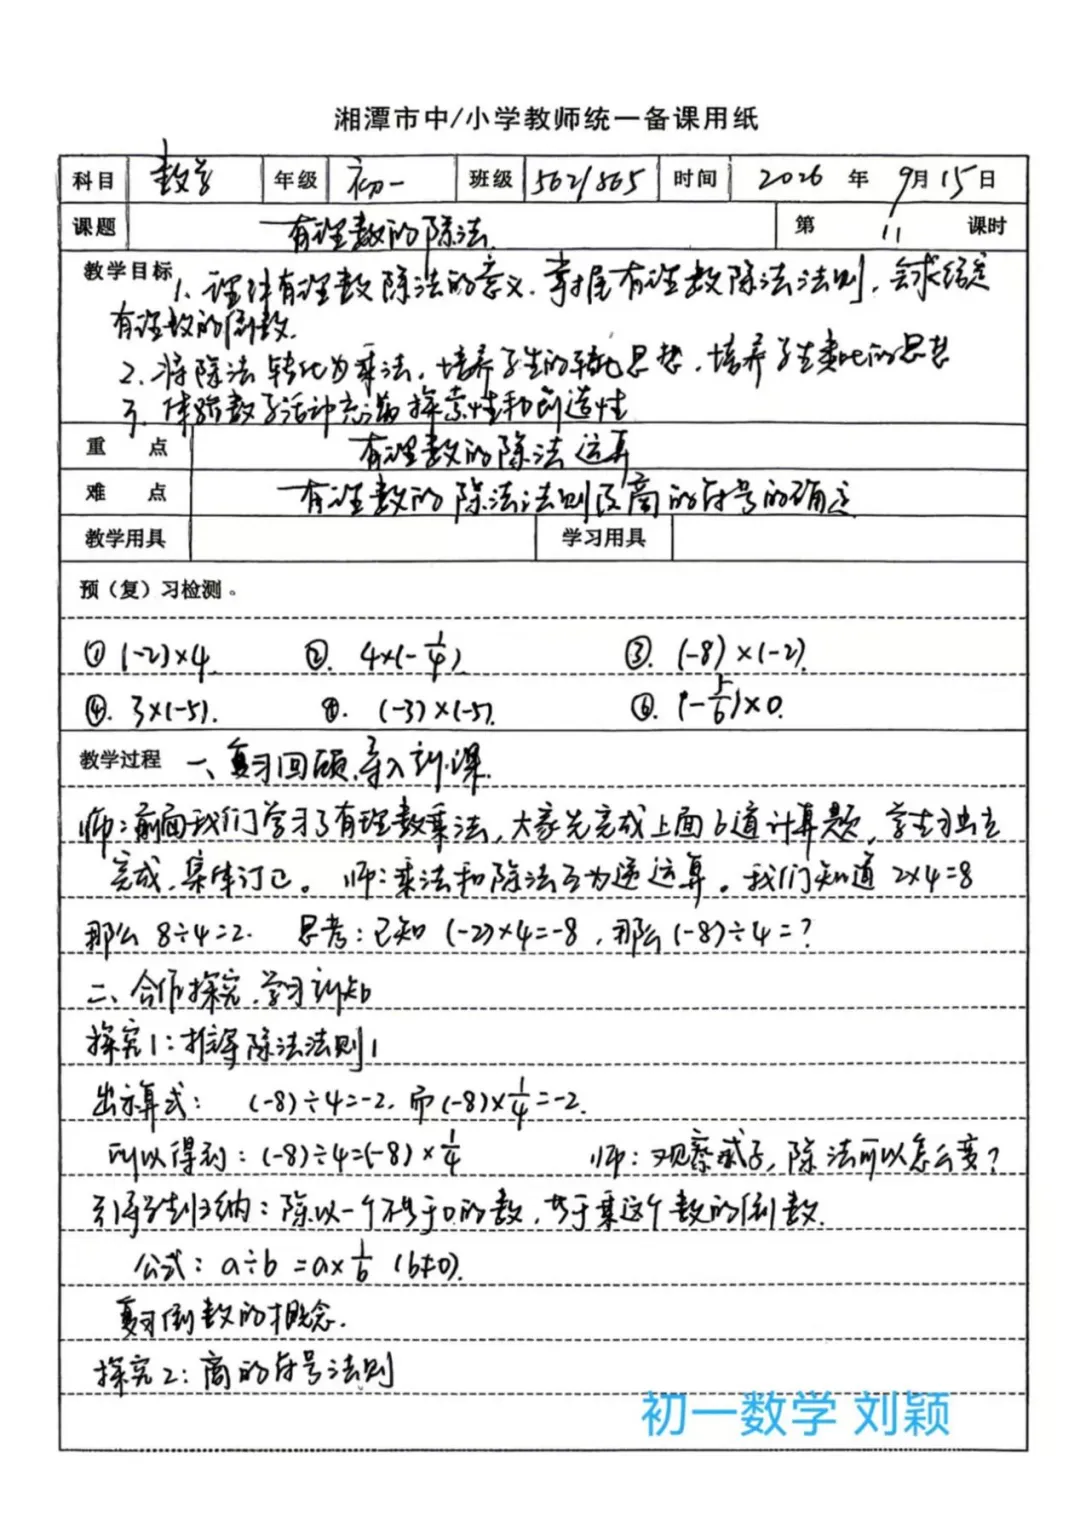 湘潭市中/小学教师统一备课用纸
科目 数学 年级 初一 班级 562/565 时间 2026年9月15日
课题 有理数的除法 第11课时
教学目标 1、理解有理数除法的意义．掌握有理数除法法则，会求给定
有理数的倒数．
2．将除法转化为乘法，培养学生的转化思想，培养学生类比的思想
3．体验数学活动充满探索性和创造性
重点 有理数的除法运算
难点 有理数的除法法则及商的符号的确定
教学用具 学习用具
预（复）习检测。
① (-2)×4. ②. 4×(-1/4). ③. (-8)×(-2).
④. 3×(-5). ⑤. (-3)×(-5). ⑥. (-5/6)×0.
教学过程 一、复习回顾，导入新课．
师：前面我们学习了有理数乘法，大家先完成上面6道计算题，学生独立
完成，集体订正。 师：乘法和除法互为逆运算。我们知道 2×4=8
那么 8÷4=2. 思考：已知 (-2)×4=-8，那么(-8)÷4=？
二、合作探究，学习新知
探究1：推导除法法则1
出示算式： (-8)÷4=-2. 而(-8)×1/4=-2.
所以得到：(-8)÷4=(-8)×1/4 师：观察式子，除法可以怎么变？
引导学生归纳：除以一个不等于0的数，等于乘这个数的倒数．
公式：a÷b=a×1/b (b≠0).
复习倒数的概念．
探究2：商的符号法则
初一数学 刘颖